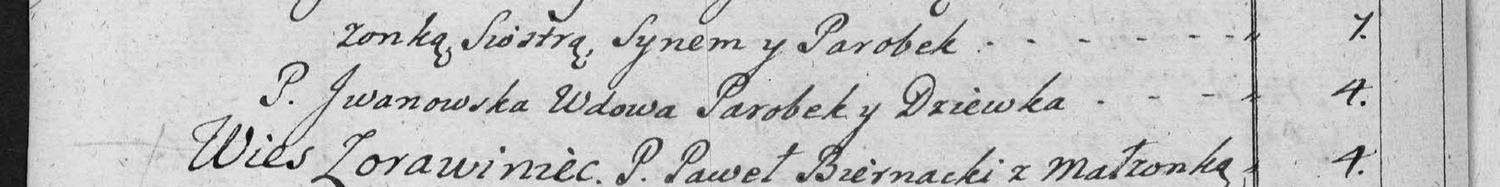 zonką, Siostrą, Synem y Parobek - - - - - - - " 7.
P. Jwanowska Wdowa Parobek y Dziewka - - - - " 4.
Wies Zorawiniec. P. Paweł Biernacki z Małzonką, " 4.